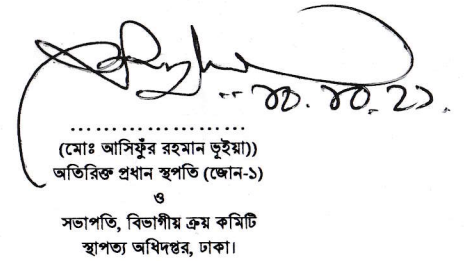 ১০.১০.২১
....................
(মোঃ আসিফুঁর রহমান ভূইয়া))
অতিরিক্ত প্রধান স্থপতি (জোন-১)
ও
সভাপতি, বিভাগীয় ক্রয় কমিটি
স্থাপত্য অধিদপ্তর, ঢাকা।